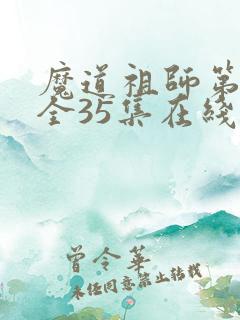 魔道祖师第
全35集在线
曾令华
未经同意禁止转载